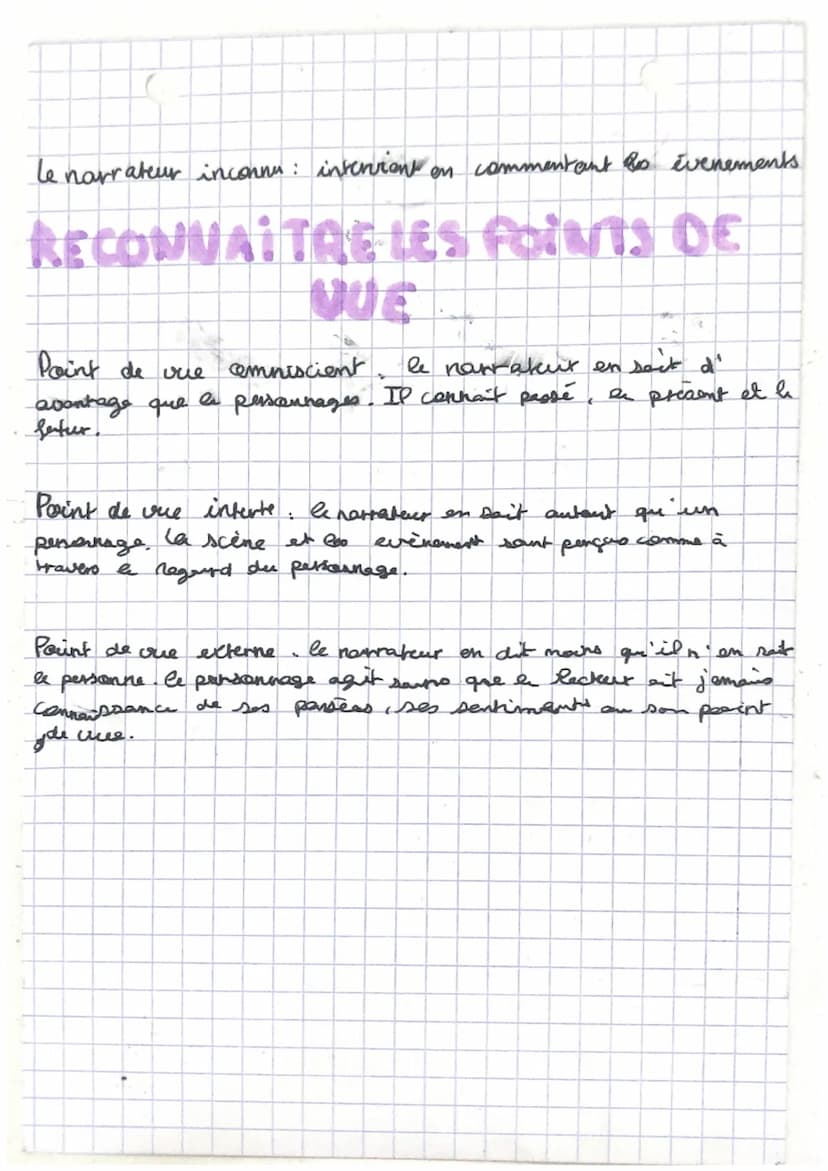 Le narrateur inconnu : intervient en commentant les évenements
RECONNAiTRE LES POiNTS DE
VUE
Point de vue omniscient. le narrateur en sait d'
avantage que le personnages. Il connait passé, le présent et le
futur.
Point de vue interte : le narrateur en sait autant qu'un
personnage. La scène et les evènement sont perçus comme à
travers le regard du personnage.
Point de vue externe. le narrateur en dit moins qu'il n'en sait
le personne. le personnage agit sans que le lecteur ait jamais
connaissance de ses pensées, ses sentiments ou son point
de vue.